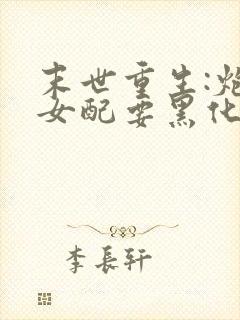 末世重生:炮
女配要黑化
李長軒